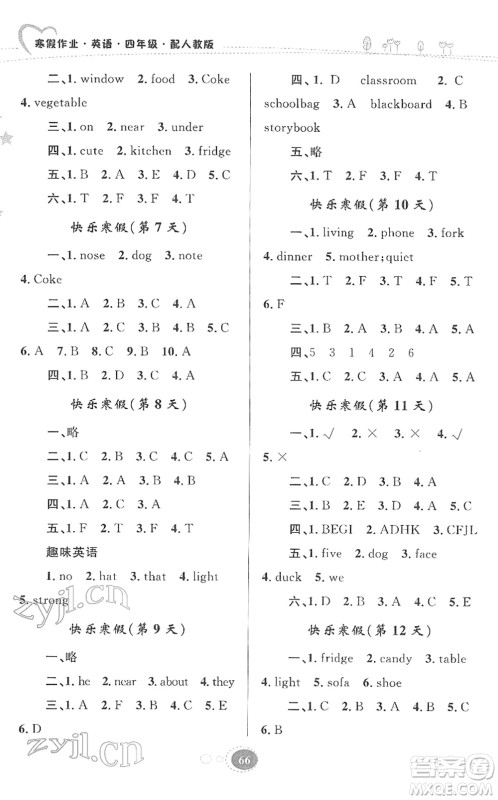 寒假作业·英语·四年级·配人教版
二、1. window 2. food 3. Coke
4. vegetable
三、1. on 2. near 3. under
四、1. cute 2. kitchen 3. fridge
五、1. B 2. A 3. C 4. A 5. B
六、1. T 2. F 3. F 4. T 5. T
快乐寒假(第 7 天)
一、1. nose 2. dog 3. note
4. Coke
二、1. A 2. B 3. C 4. A
三、1. C 2. B 3. B 4. A 5. A
6. A 7. B 8. C 9. B 10. A
四、1. T 2. F 3. F 4. T 5. T
快乐寒假(第 8 天)
一、略
二、1. C 2. C 3. A 4. C 5. A
三、1. C 2. A 3. B 4. B 5. C
四、1. B 2. A 3. D 4. C 5. E
五、1. F 2. T 3. F 4. T 5. T
趣味英语
1. no 2. hat 3. that 4. light
5. strong
快乐寒假(第 9 天)
一、略
二、1. he 2. near 3. about 4. they
三、1. E 2. F 3. A 4. B 5. C
6. D
四、1. A classroom 2. B
schoolbag 3. A blackboard 4. B
storybook
五、略
六、1. T 2. F 3. T 4. F 5. T
快乐寒假(第 10 天)
一、1. living 2. phone 3. fork
4. dinner 5. mother;quiet
二、1. C 2. B 3. B 4. A 5. C
三、1. C 2. E 3. A 4. B 5. D
6. F
四、5 3 1 4 2 6
五、1. A 2. C 3. B 4. B 5. A
快乐寒假(第 11 天)
一、1. √ 2. × 3. × 4. √
5. ×
二、1. B 2. A 3. C 4. B 5. A
三、1. C 2. A 3. D 4. E 5. B
四、1. BEGI 2. ADHK 3. CFJL
五、1. five 2. dog 3. face
4. duck 5. we
六、1. B 2. D 3. A 4. C 5. E
快乐寒假(第 12 天)
一、1. fridge 2. candy 3. table
4. light 5. sofa 6. shoe
二、1. A 2. C 3. B 4. A 5. C
6. B
66
zyjl.cn
zyjl.cn